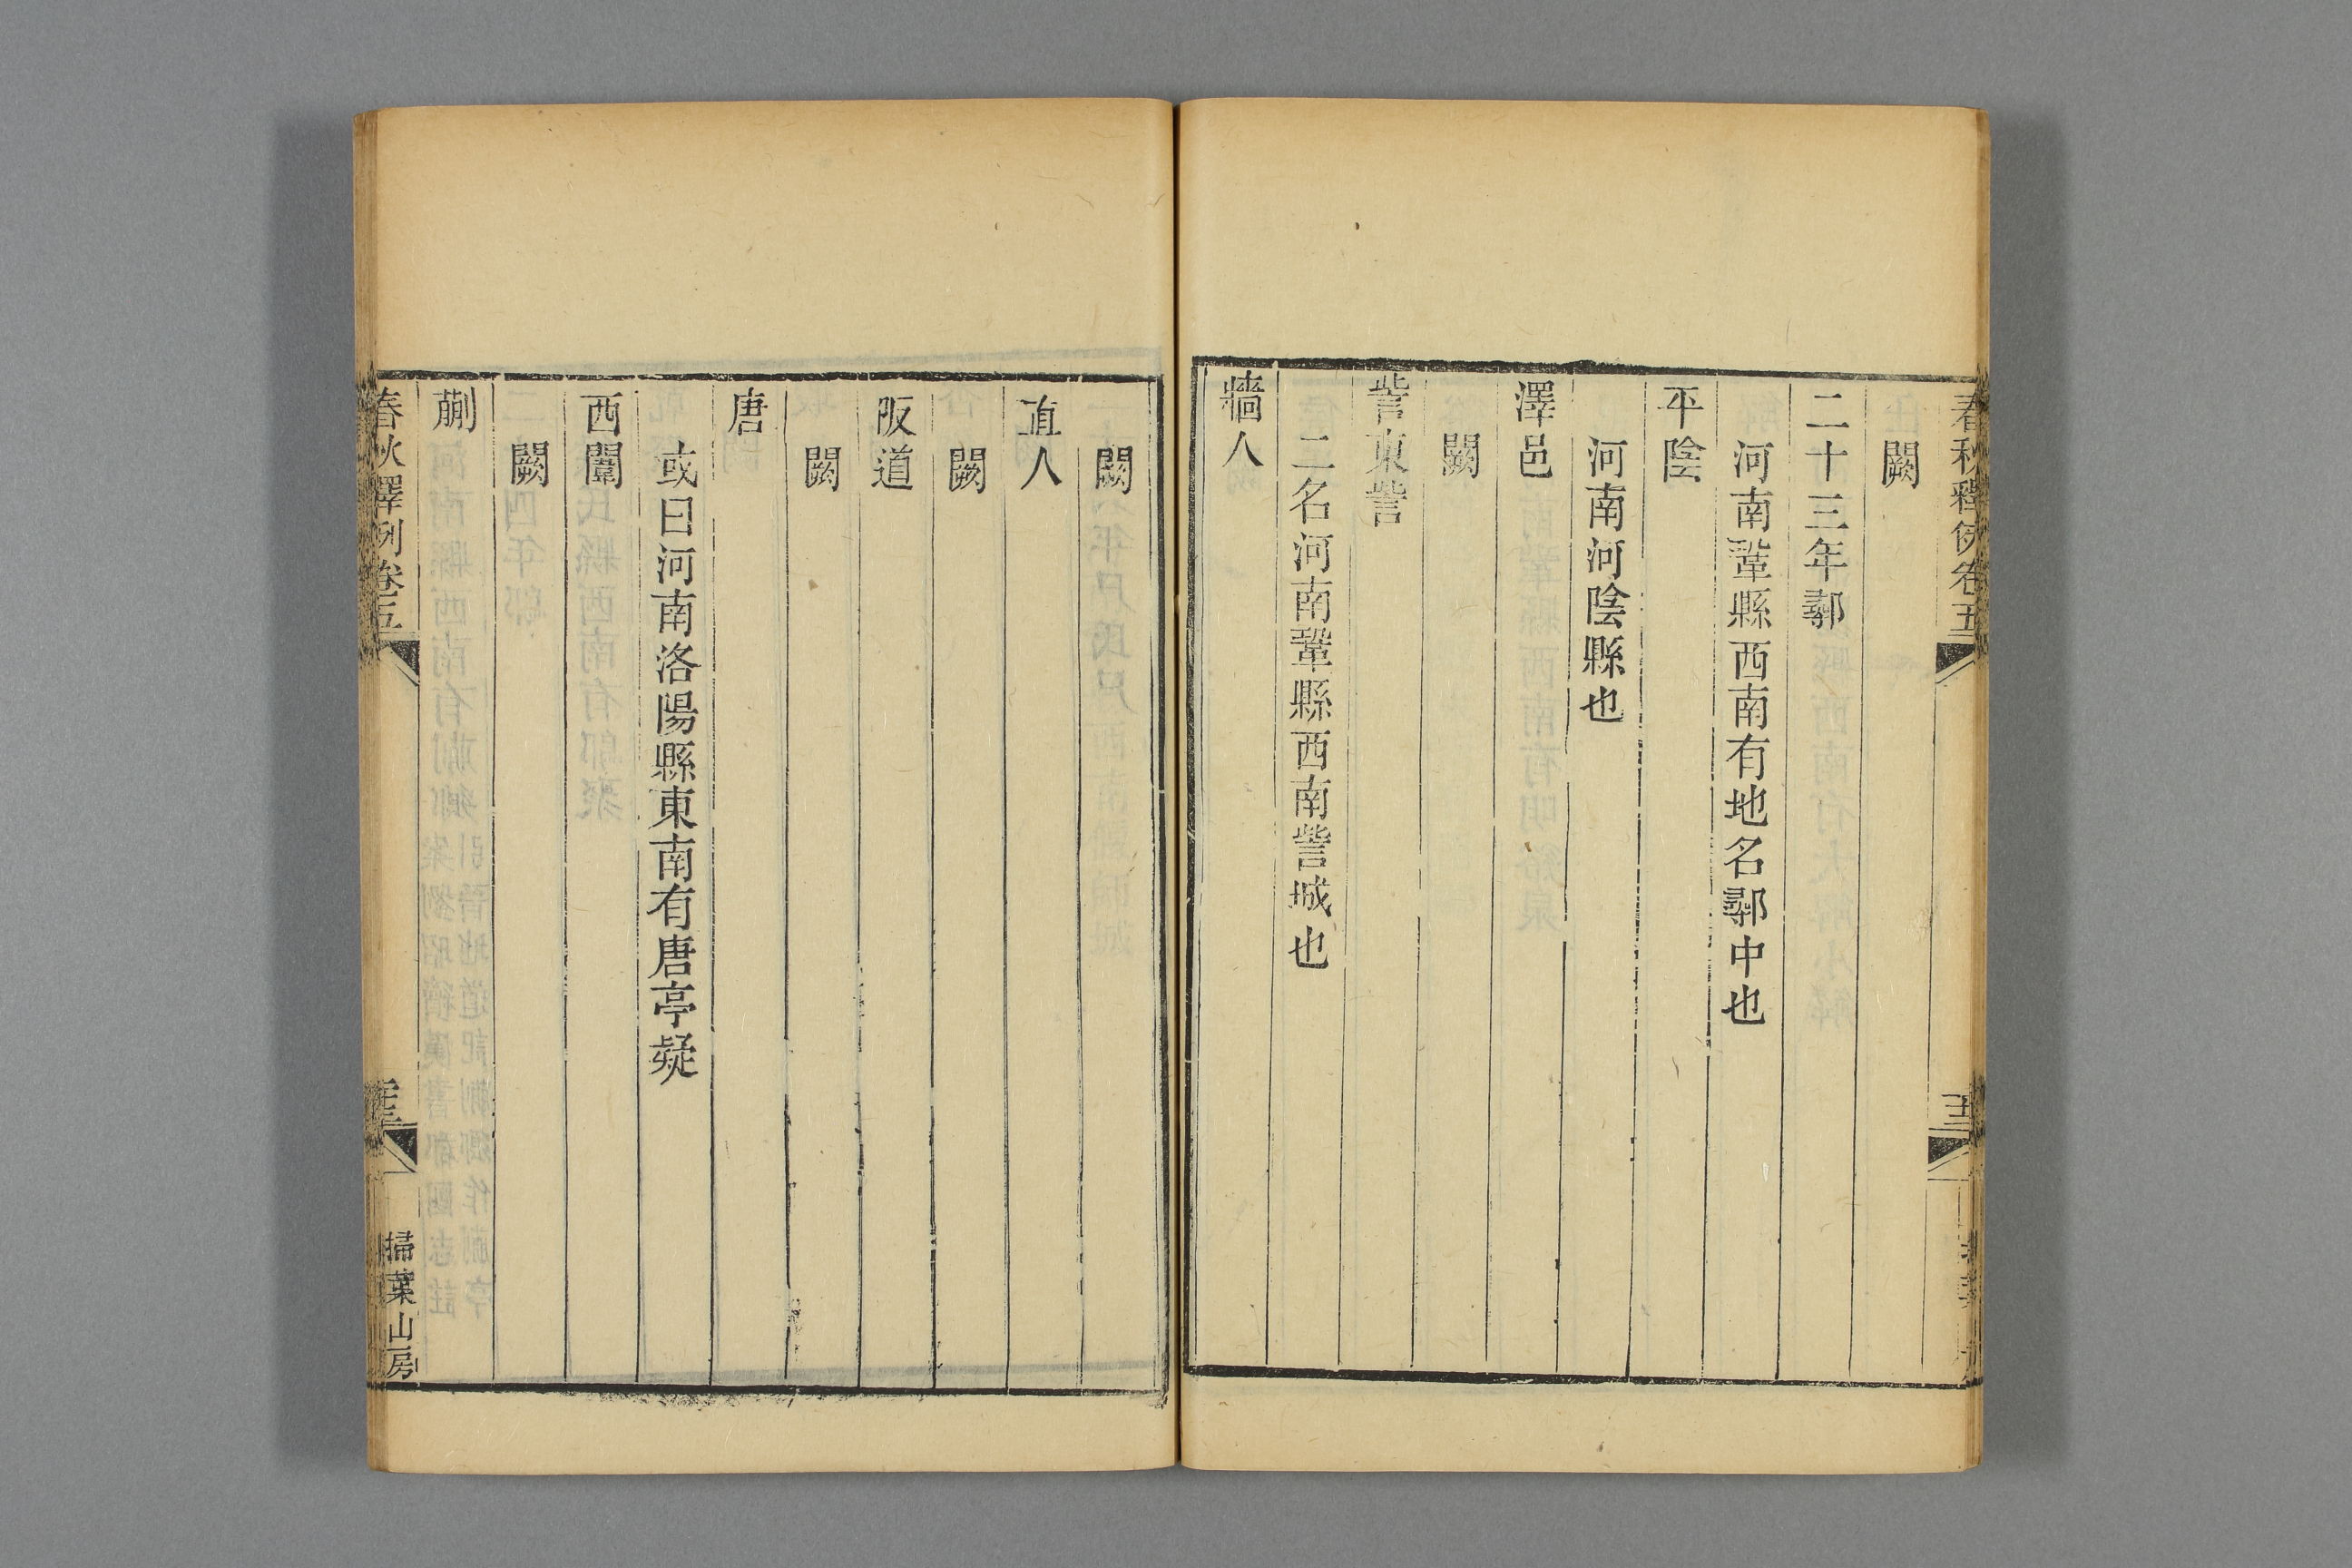 春秋釋例卷五
闕
二十三年鄩
河南鞏縣西南有地名鄩中也
平陰
河南河陰縣也
澤邑
闕
訾東訾
二名河南鞏縣西南訾城也
牆人
闕
直人
闕
阪道
闕
唐
或曰河南洛陽縣東南有唐亭疑
西闈
闕
蒯
春秋釋例卷五
掃葉山房